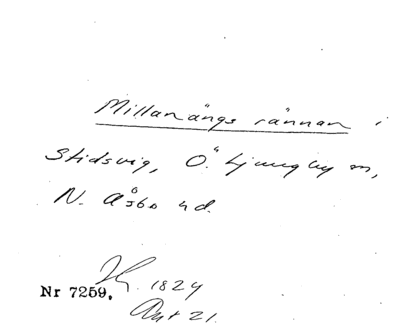 Millanängs rännan i
Stidsvig, Ö. Ljungby sn,
N. Åsbo hd.
1824
Nr 7259.
Akt 21.